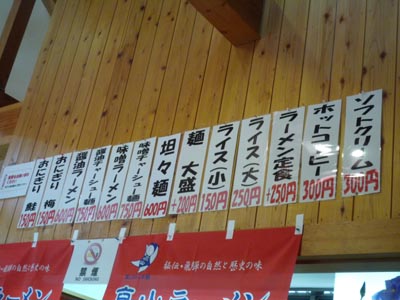 ソフトクリーム 300円
ホットコーヒー 300円
ラーメン定食 +250円
ライス(大) 250円
ライス(小) 150円
麺 大盛 +200円
坦々麺 600円
味噌チャーシュー麺 750円
味噌ラーメン 600円
醤油チャーシュー麺 750円
醤油ラーメン 600円
おにぎり 梅 150円
おにぎり 鮭 150円
禁煙
NO SMOKING
秘伝・飛騨の自然と歴史の味
高山ラーメン
自然と歴史の味
ラーメン